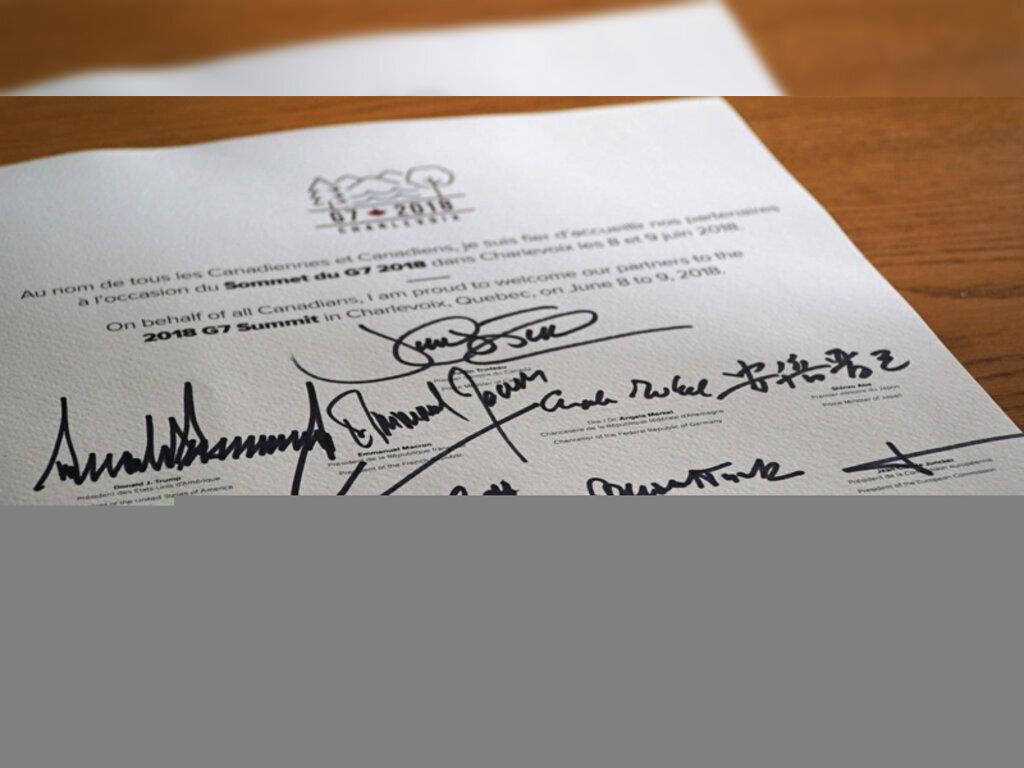 G7 2018
CHARLEVOIX
Au nom de tous les Canadiennes et Canadiens, je suis fier d'accueillir nos partenaires
à l'occasion du Sommet du G7 2018 dans Charlevoix les 8 et 9 juin 2018.
On behalf of all Canadians, I am proud to welcome our partners to the
2018 G7 Summit in Charlevoix, Quebec, on June 8 to 9, 2018.
Trudeau
安倍晋三
Shinzo Abe
Premier ministre du Japon
Prime Minister of Japan
Angela Merkel
Dre / Dr. Angela Merkel
Chancelière de la République fédérale d'Allemagne
Chancellor of the Federal Republic of Germany
Emmanuel Macron
Président de la République
President of the French Republic
Donald J. Trump
Président des États-Unis d'Amérique
of the United States of America
Juncker
Président de la Commission européenne
President of the European Commission